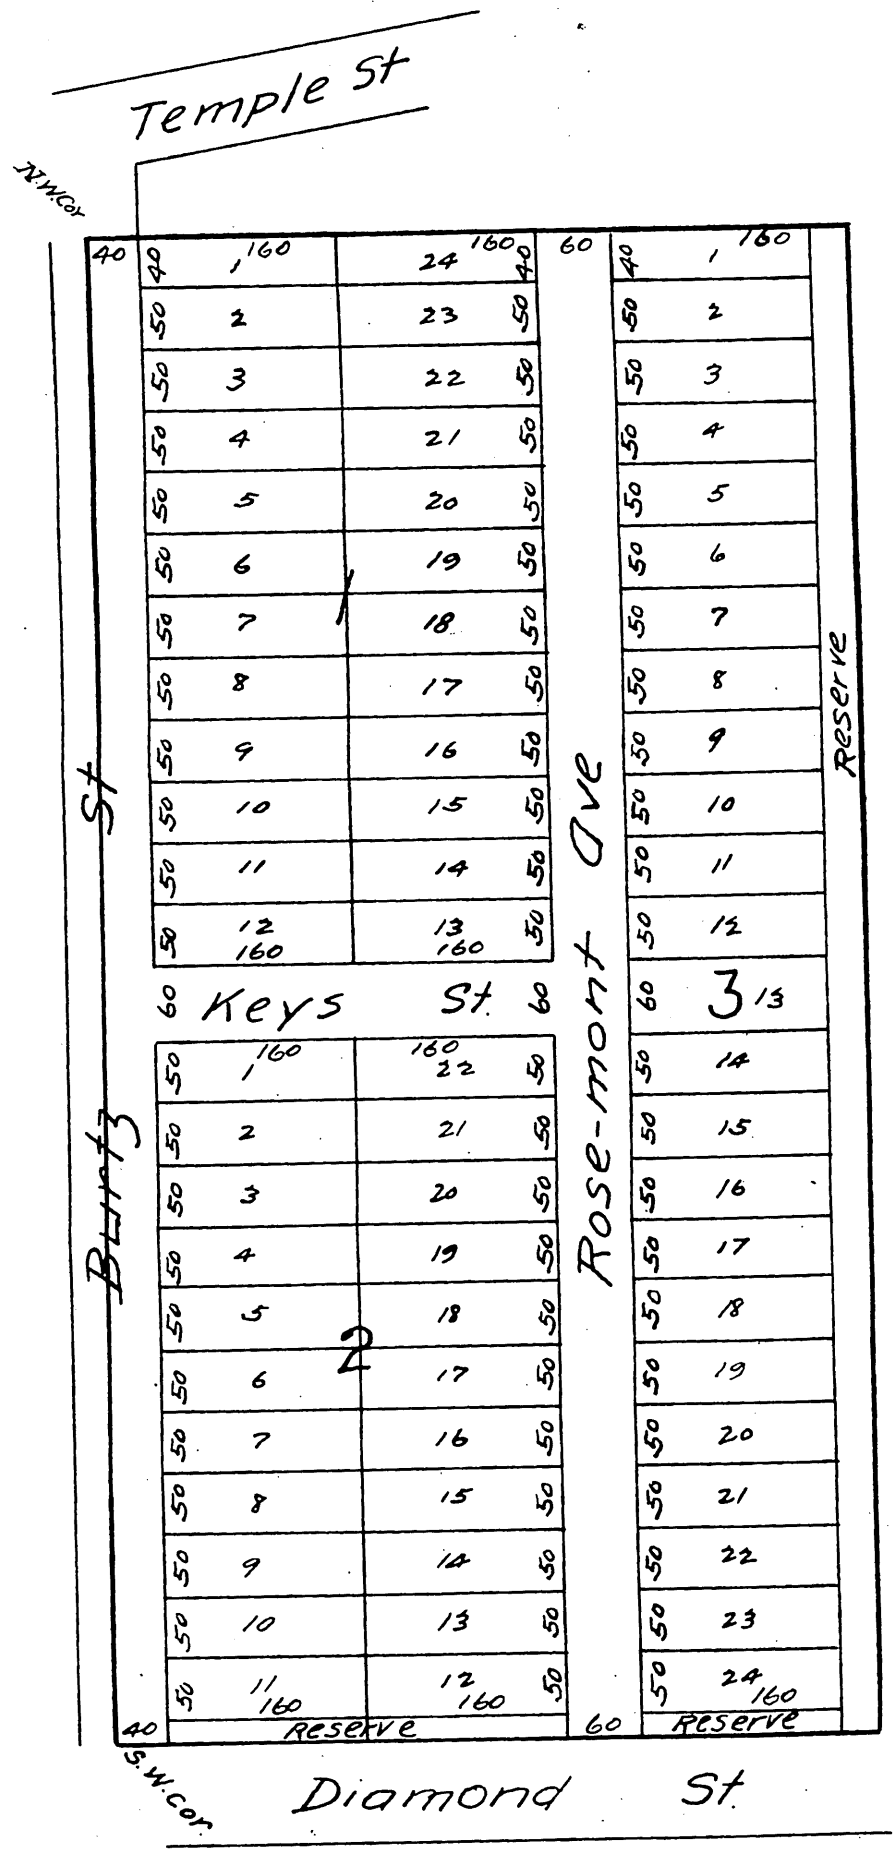 Temple St
N.W.Cor
40 40 1 160 24 160 40 60 40 1 160
50 2 23 50 50 2
50 3 22 50 50 3
50 4 21 50 50 4
50 5 20 50 50 5
50 6 19 50 50 6
1
50 7 18 50 50 7
50 8 17 50 50 8
Reserve
50 9 16 50 50 9
50 10 15 50 50 10
50 11 14 50 50 11
50 12 13 50 50 12
160 160
60 Keys St. 60 60 3 13
Buntz St
Rose-mont Ave
50 1 160 160 22 50 50 14
50 2 21 50 50 15
50 3 20 50 50 16
50 4 19 50 50 17
50 5 18 50 50 18
2
50 6 17 50 50 19
50 7 16 50 50 20
50 8 15 50 50 21
50 9 14 50 50 22
50 10 13 50 50 23
50 11 12 50 50 24
160 160 160
40 Reserve 60 Reserve
S.W.cor.
Diamond St.